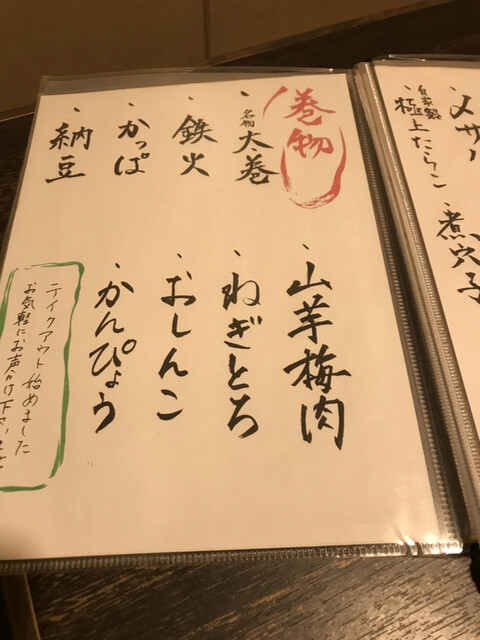 自家製
極上たらこ
煮穴子
巻物
名物
大巻
鉄火
かっぱ
納豆
山芋梅肉
ねぎとろ
おしんこ
かんぴょう
テイクアウト始めました
お気軽にお声かけ下さいませ